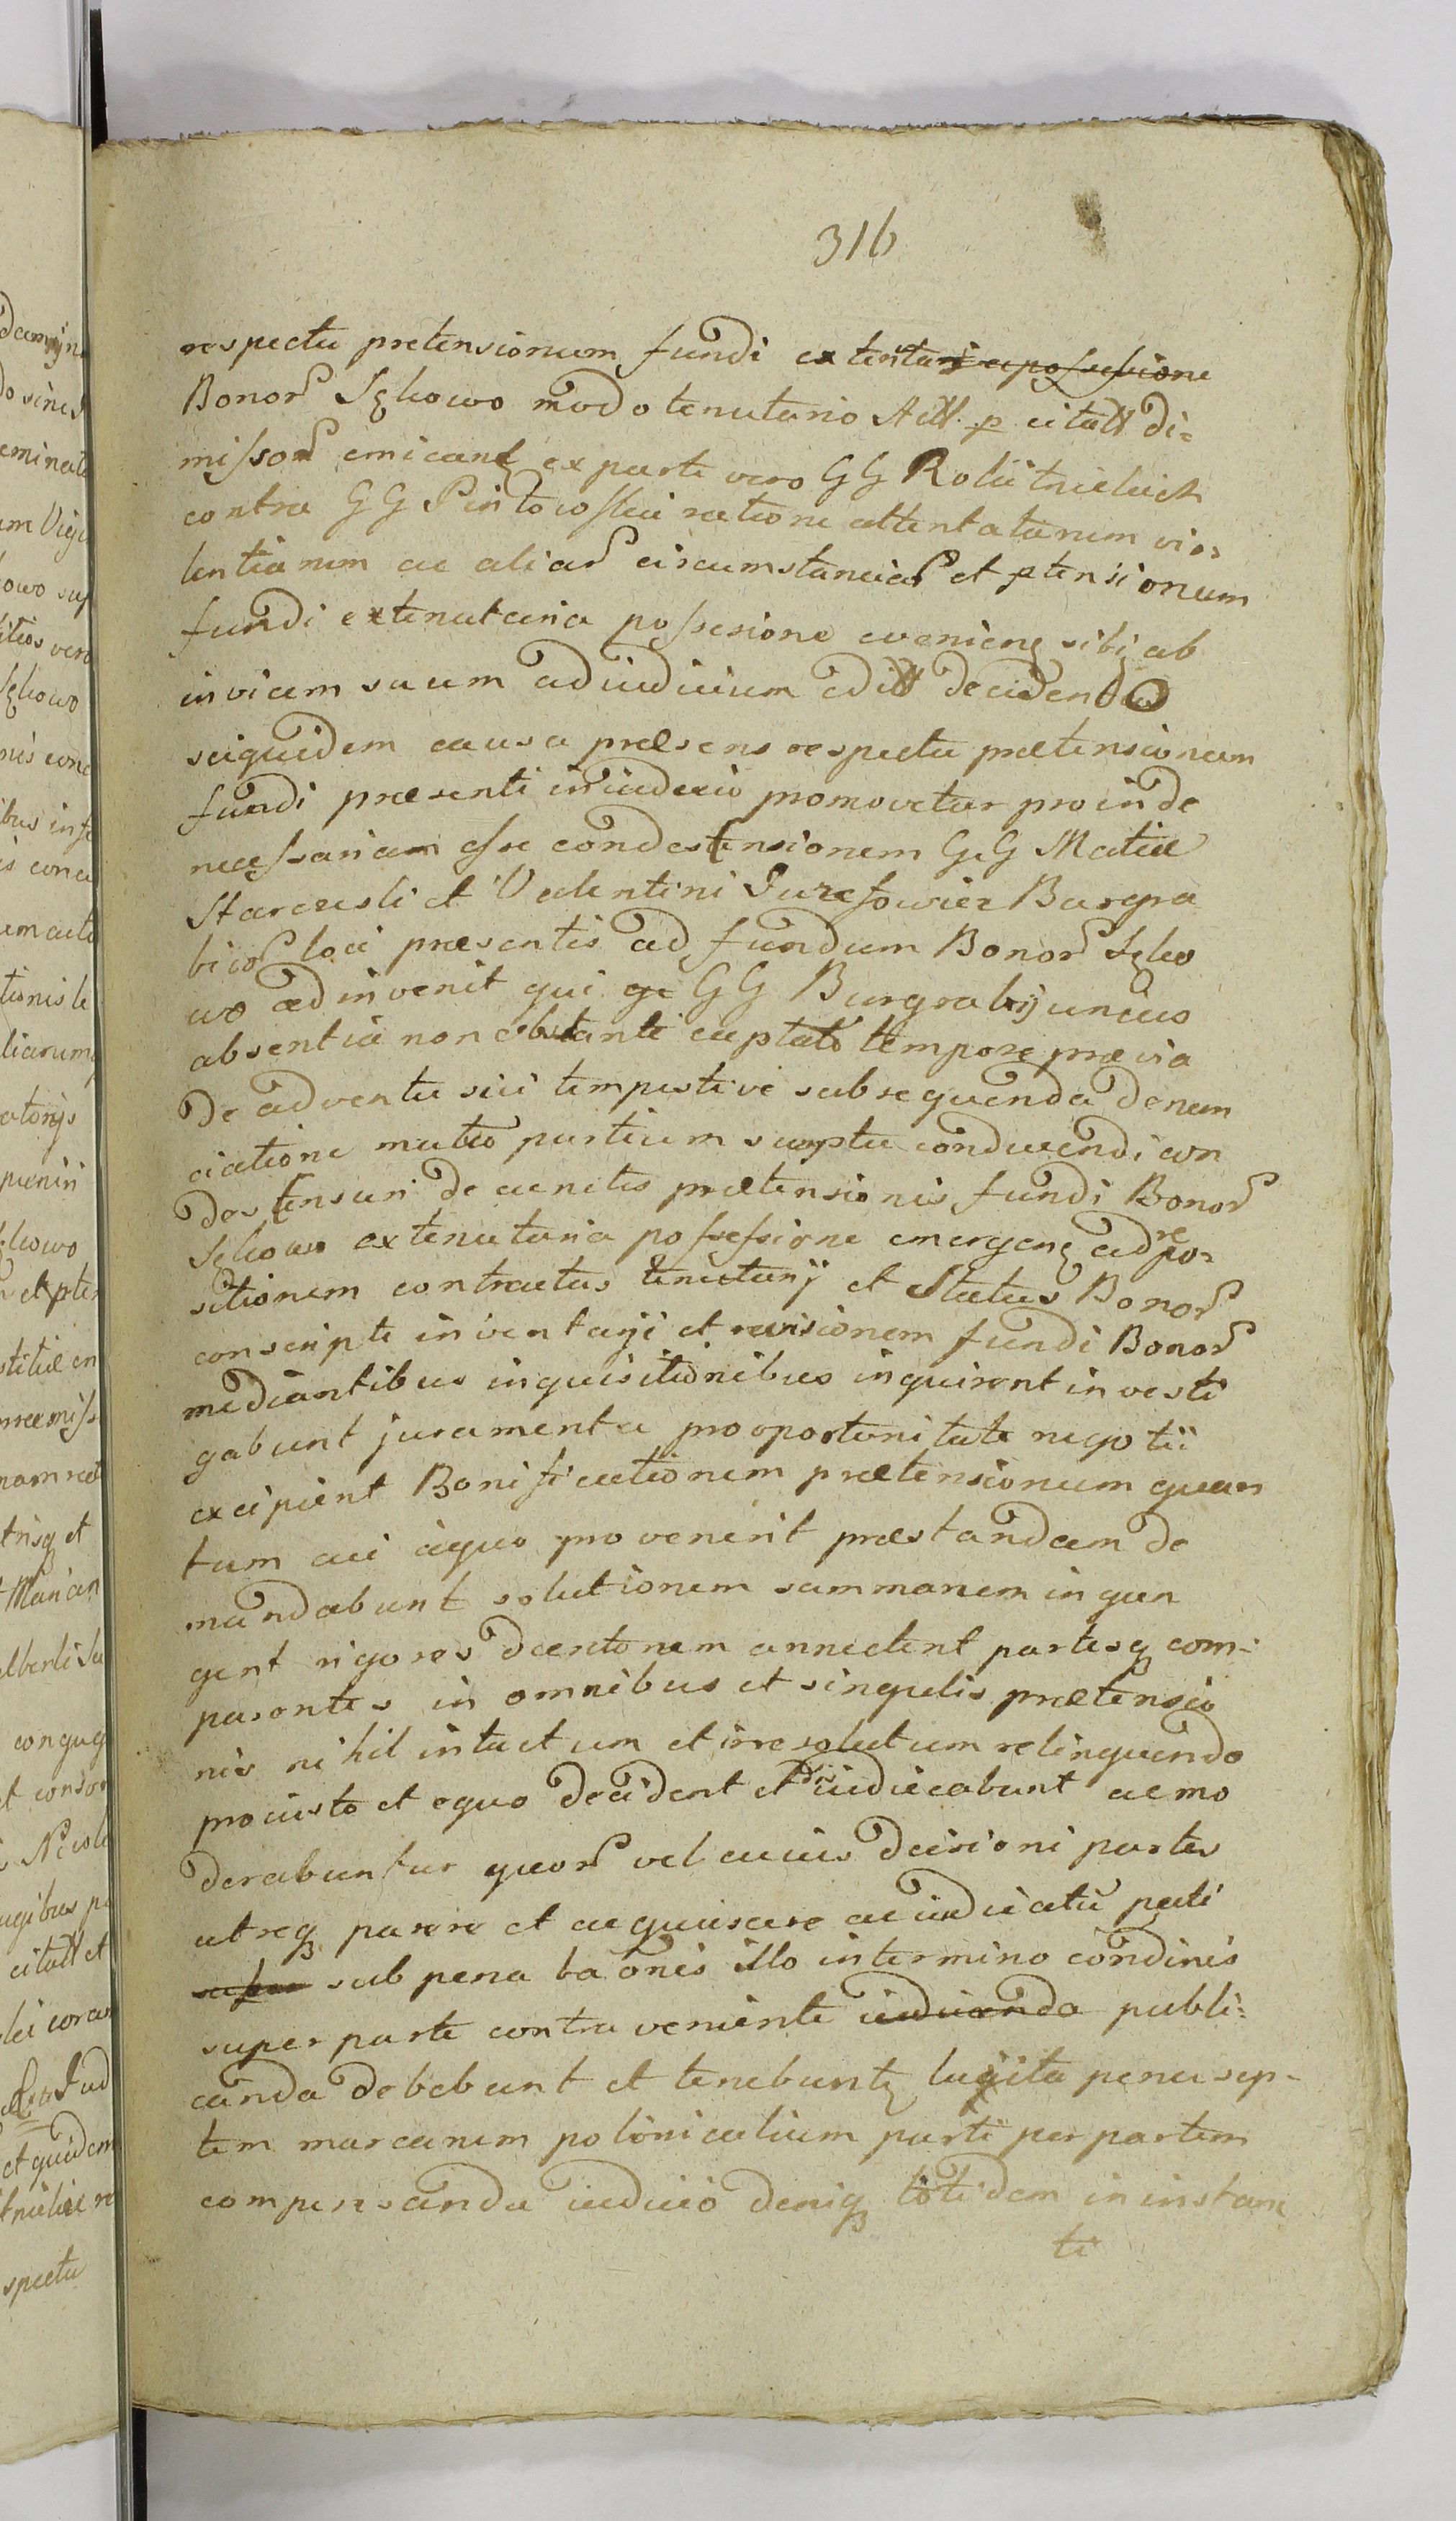 316
respectu pretensionum fundi ex tentaria possessione
Bonor Sękowo modo tenutario Actt. p citatt di=
missor emicant ex parte vero GG Rokitnickich
contra GG Pintowskie ratione attentatarum vio=
lentiarum ac aliar circumstanciar et ptensionum
fundi extenutaria possesione evenienę sibi ab
invicem suum ad iudicium editt decidendo
siquidem causa præsens respectu prætensionum
fundi præsenti in iudicio promovetur proinde
necessariam esse condestensionem GG Matiæ
Starczeski et Valentini Jurefowicz Burgra
bior loci præsentis ad fundum Bonor Sęko
wo ad invenit qui ge GG Burgrabij unius
absentia non obstante captato tempore prævia
De adventu sui tempestive subsequenda denun
ciatione mutuo partium sumptu conducendi con
destensuri de cunctis prætensionis fundi Bonor
Sękowo ex tenutaria possessione emergenę ad repo=
sitionem contractus tenutarij et Status Bonor
conscripti inventarji et revisionem fundi Bonor
mediantibus inquisitionibus inquirent investi
gabunt juramenta pro oportunitate negotii
excipient Bonificationem prætensionum quan
tum cui àquo provenerit præstandam de
mandabunt solutionem summarum iniun
gent rigores decretorum annectent partesq com=
parentes in omnibus et singulis prætensio
nis nihil intactum et irresolutum relinquendo
pro iusto et equo decident et diiudicabunt ac mo
derabuntur quor vel cuius decisioni partes
utreq parere et acquiescere ac iudicatū pati
super sub pena baōnis illo in termino condinis
super parte contraveniente iudicanda publi=
canda debebunt et tenebuntę lucita pena sep=
tem marcarum polonicalium parti per partem
compensanda iudicio deniq totidem in instan
ti